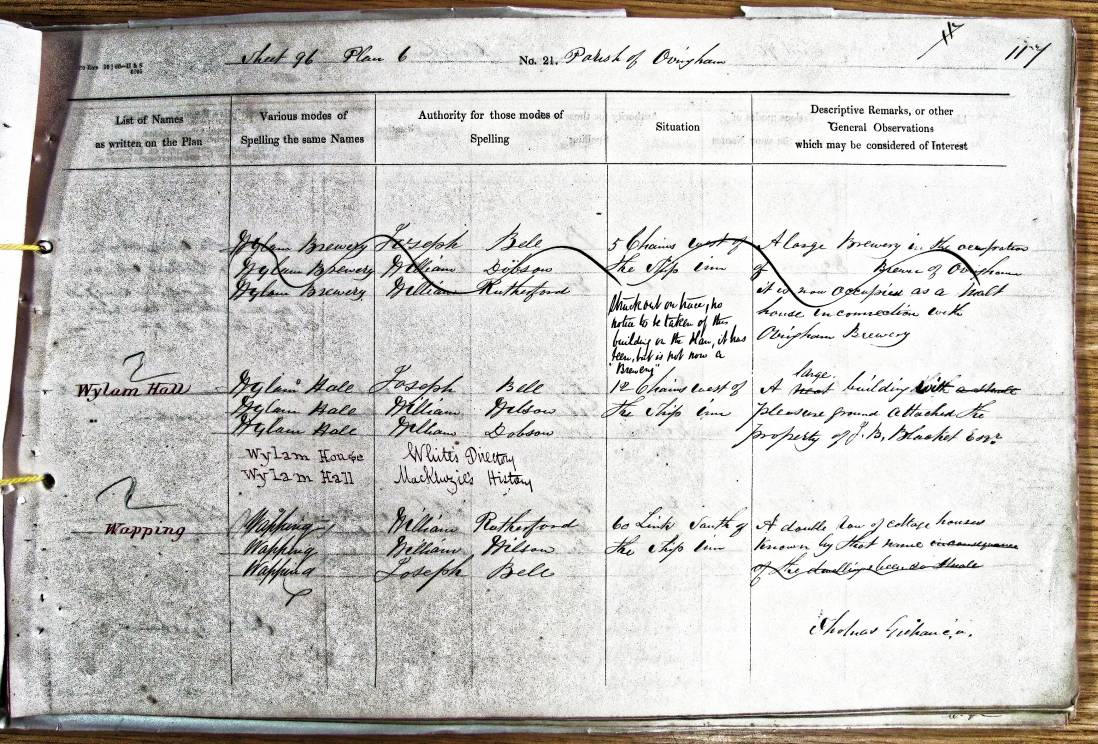 Sheet 96 Plan 6 No. 21. Parish of Ovingham 117
List of Names
as written on the Plan
Various modes of
Spelling the same Names
Authority for those modes of
Spelling
Situation
Descriptive Remarks, or other
General Observations
which may be considered of Interest
Wylam Brewery Joseph Bell 5 Chains west of A large Brewery in the occupation
Wylam Brewery William Dobson the Ship inn of Brewer of Ovingham
Wylam Brewery William Rutherford it is now occupied as a Malt
house in connection with
Ovingham Brewery
Struck out on trace, no
notice to be taken of this
building on the Plan, it has
been, but is not now a
"Brewery"
large
Wylam Hall Wylam Hall Joseph Bell 12 Chains west of A neat building with a small
Wylam Hall William Wilson the Ship inn pleasure ground attached the
Wylam Hall William Dobson property of J. B. Blacket Esqr.
Wylam House White's Directory
Wylam Hall Mackenzie's History
Wapping Wapping William Rutherford 60 Link South of A double row of cottage houses
Wapping William Wilson the Ship inn Known by that name in consequence
Wapping Joseph Bell of the
Thomas